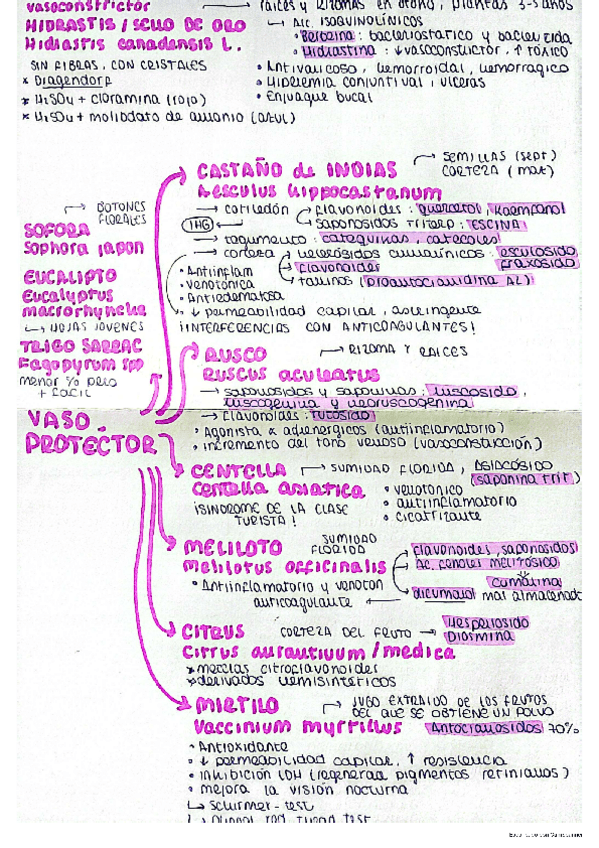 vasoconstrictor
raíces y rizomas en otoño, plantas 3-5 años
HIDRASTIS / SELLO DE ORO
Hidrastis canadensis L.
SIN FIBRAS, CON CRISTALES
* Dragendorf
* H₂SO₄ + cloramina (rojo)
* H₂SO₄ + molibdato de amonio (azul)
Alc. ISOQUINOLÍNICOS
• Berberina: bacteriostático y bactericida
• Hidrastina: ↓vasoconstrictor, ↑ TÓXICO
• Antivaricoso, hemorroidal, hemorrágico
• Hiperemia conjuntival, úlceras
• Enjuague bucal
CASTAÑO de INDIAS → SEMILLAS (sept)
CORTEZA (mar)
Aesculus hippocastanum
→ cotiledón flavonoides: quercetol, kaempferol
IHG saponósidos triterp: ESCINA
→ tegumento: catequinas, catecoles
→ corteza heterósidos cumarínicos: esculósido
fraxósido
flavonoides
taninos (proantocianidina A2)
• Antiinflam
• venotónica
• Antiedematosa
• ↓ permeabilidad capilar, astringente
¡INTERFERENCIAS CON ANTICOAGULANTES!
→ BOTONES
FLORALES
SOFORA
Sophora japon
EUCALIPTO
Eucalyptus
macrorhyncha
↳ HOJAS JÓVENES
TRIGO SARRAC
Fagopyrum spp
menor % pero
+ fácil
VASO-
PROTECTOR
RUSCO → RIZOMA Y RAÍCES
Ruscus aculeatus
→ saponósidos y saponinas: ruscósido,
ruscogenina y neoruscogenina
→ flavonoides: rutósido
• Agonista α adrenérgicos (antiinflamatorio)
• incremento del tono venoso (vasoconstricción)
CENTELLA → SUMIDAD FLORIDA, ASIACÓSIDO
(saponina trit)
Centella asiatica
¡SÍNDROME DE LA CLASE
TURISTA!
• venotónico
• antiinflamatorio
• cicatrizante
MELILOTO SUMIDAD
FLORIDA
Melilotus officinalis
flavonoides, saponósidos
Ac. fenoles MELITÓSIDO
cumarina
• Antiinflamatorio y venoton
anticoagulante ← dicumarol mal almacenado
CITRUS CORTEZA DEL FRUTO → Hesperiósido
Diosmina
Citrus aurantium / medica
* mezclas citroflavonoides
* derivados hemisintéticos
MIRTILO → JUGO EXTRAÍDO DE LOS FRUTOS
DEL QUE SE OBTIENE UN POLVO
Vaccinium myrtillus Antocianósidos 70%
• Antioxidante
• ↓ permeabilidad capilar, ↑ resistencia
• Inhibición LDH (regeneran pigmentos retinianos)
• mejora la visión nocturna
↳ Schirmer-test